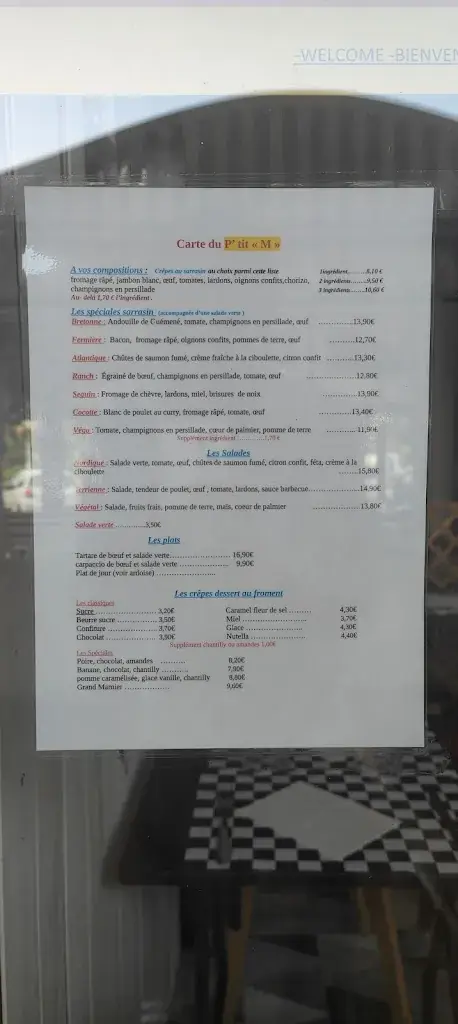 -WELCOME -BIENVEN
Carte du P' tit « M »
A vos compositions : Crêpes au sarrasin au choix parmi cette liste
fromage râpé, jambon blanc, œuf, tomates, lardons, oignons confits,chorizo,
champignons en persillade
Au- delà 1,70 € l'ingrédient .
1ingrédient..........8,10 €
2 ingrédients.........9,50 €
3 ingrédients........10,60 €
Les spéciales sarrasin (accompagnée d'une salade verte )
Bretonne : Andouille de Guémené, tomate, champignons en persillade, œuf ..............13,90€
Fermière : Bacon, fromage râpé, oignons confits, pommes de terre, œuf ...........12,70€
Atlantique : Chûtes de saumon fumé, crème fraîche à la ciboulette, citron confit ...........13,30€
Ranch : Égrainé de bœuf, champignons en persillade, tomate, œuf .....................12.80€
Seguin : Fromage de chèvre, lardons, miel, brisures de noix ..............13,90€
Cocotte : Blanc de poulet au curry, fromage râpé, tomate, œuf .............13,40€
Végé : Tomate, champignons en persillade, cœur de palmier, pomme de terre ............ 11,90€
Supplément ingrédient ............1,70 €
Les Salades
Nordique : Salade verte, tomate, œuf, chûtes de saumon fumé, citron confit, féta, crème à la
ciboulette ........15,80€
Terrienne : Salade, tendeur de poulet, œuf , tomate, lardons, sauce barbecue.....................14.90€
Végétal : Salade, fruits frais, pomme de terre, maïs, coeur de palmier ................13,80€
Salade verte ............3,50€
Les plats
Tartare de bœuf et salade verte........................ 16,90€
carpaccio de bœuf et salade verte .................... 9,90€
Plat de jour (voir ardoise) ........................
Les crêpes dessert au froment
Les classiques
Sucre ........................... 3,20€
Beurre sucre .................. 3,50€
Confiture ...................... 3,70€
Chocolat ....................... 3,90€
Caramel fleur de sel ......... 4,30€
Miel ......................... 3,70€
Glace ....................... 4,30€
Nutella ...................... 4,40€
Supplément chantilly ou amandes 1,00€
Les Spéciales
Poire, chocolat, amandes .......... 8,20€
Banane, chocolat, chantilly ........... 7,90€
pomme caramélisée, glace vanille, chantilly 8,80€
Grand Marnier .................. 9,60€